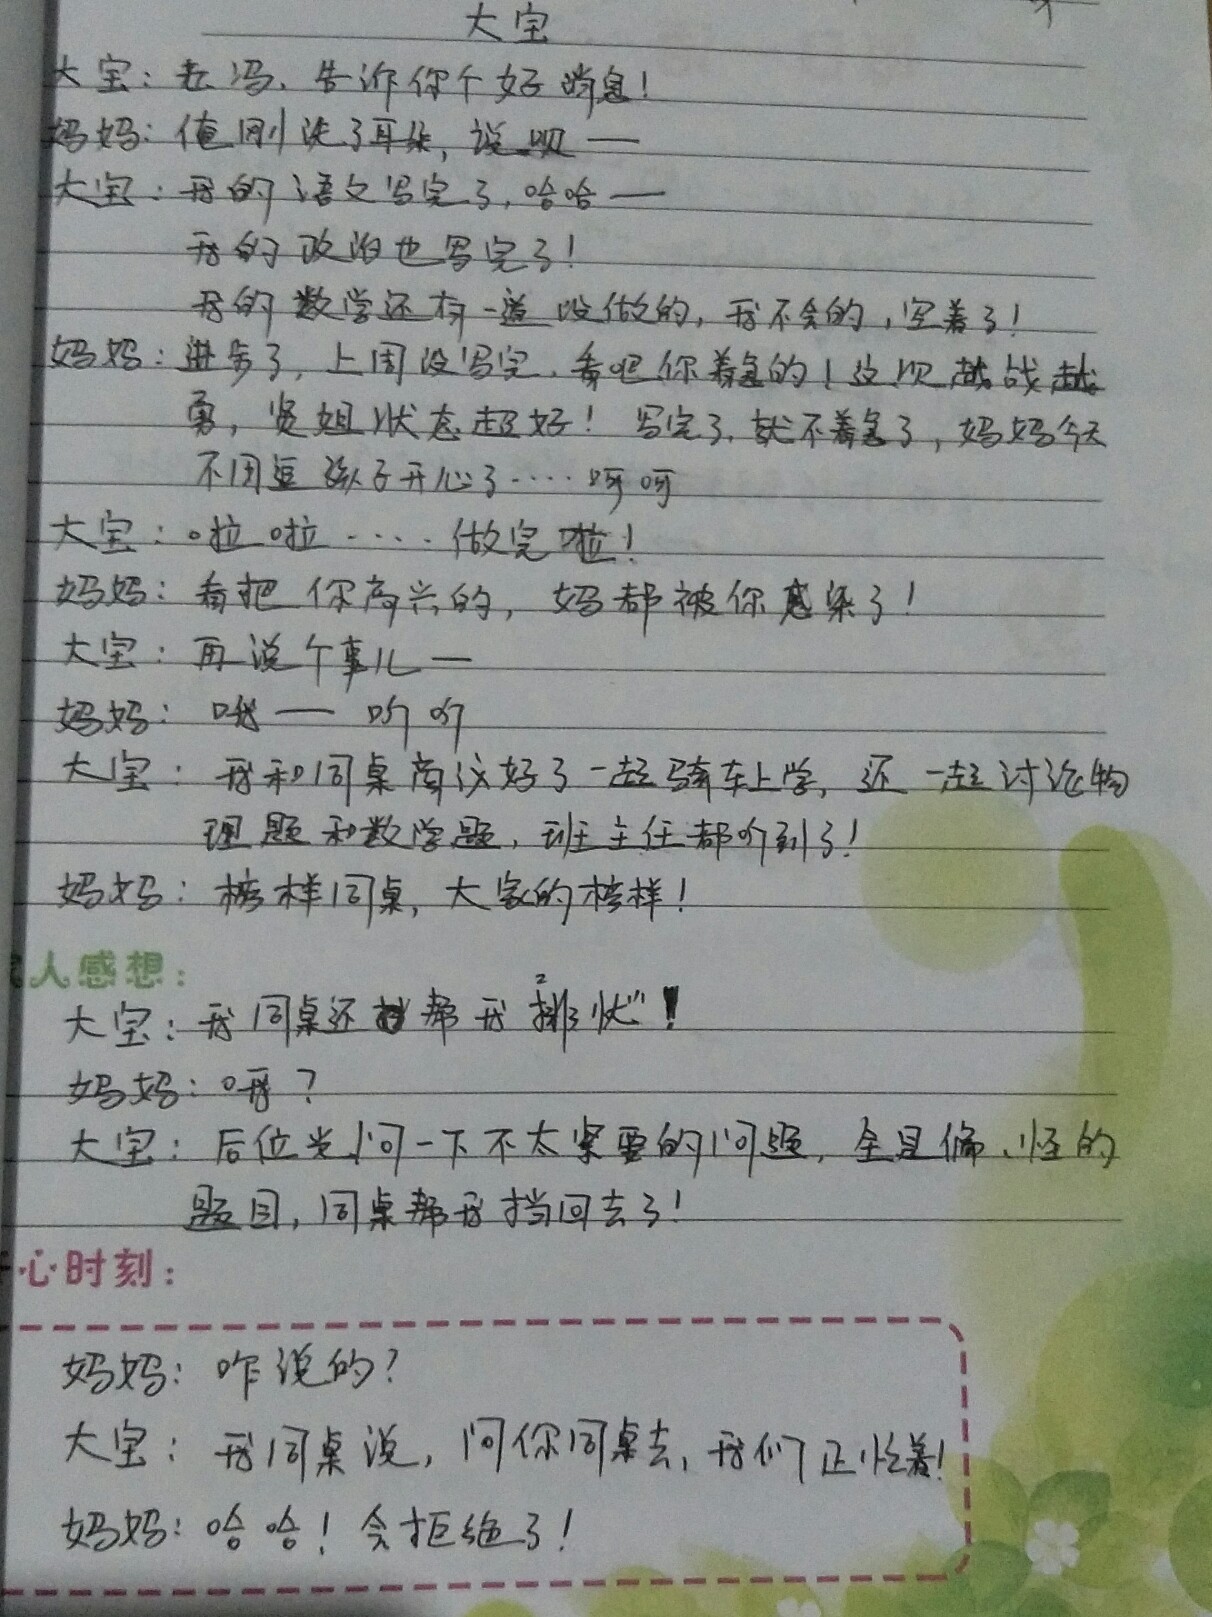 大宝
大宝：老冯，告诉你个好消息！
妈妈：俺刚洗了耳朵，说呗——
大宝：我的语文写完了，哈哈——
我的政治也写完了！
我的数学还有一道没做的，我不会的，空着了！
妈妈：进步了，上周没写完，看吧你着急的！这次越战越
勇，贤姐状态超好！写完了，就不着急了，妈妈今天
不用逗孩子开心了····呵呵
大宝：啦啦····做完啦！
妈妈：看把你高兴的，妈都被你感染了！
大宝：再说个事儿—
妈妈：哦——听听
大宝：我和同桌商议好了一起骑车上学，还一起讨论物
理题和数学题，班主任都听到了！
妈妈：榜样同桌，大家的榜样！
人感想：
大宝：我同桌还帮我排忧！
妈妈：哦？
大宝：后位光问一下不太紧要的问题，全是偏、怪的
题目，同桌帮我挡回去了！
心时刻：
妈妈：咋说的？
大宝：我同桌说，问你同桌去，我们正忙着！
妈妈：哈哈！会拒绝了！